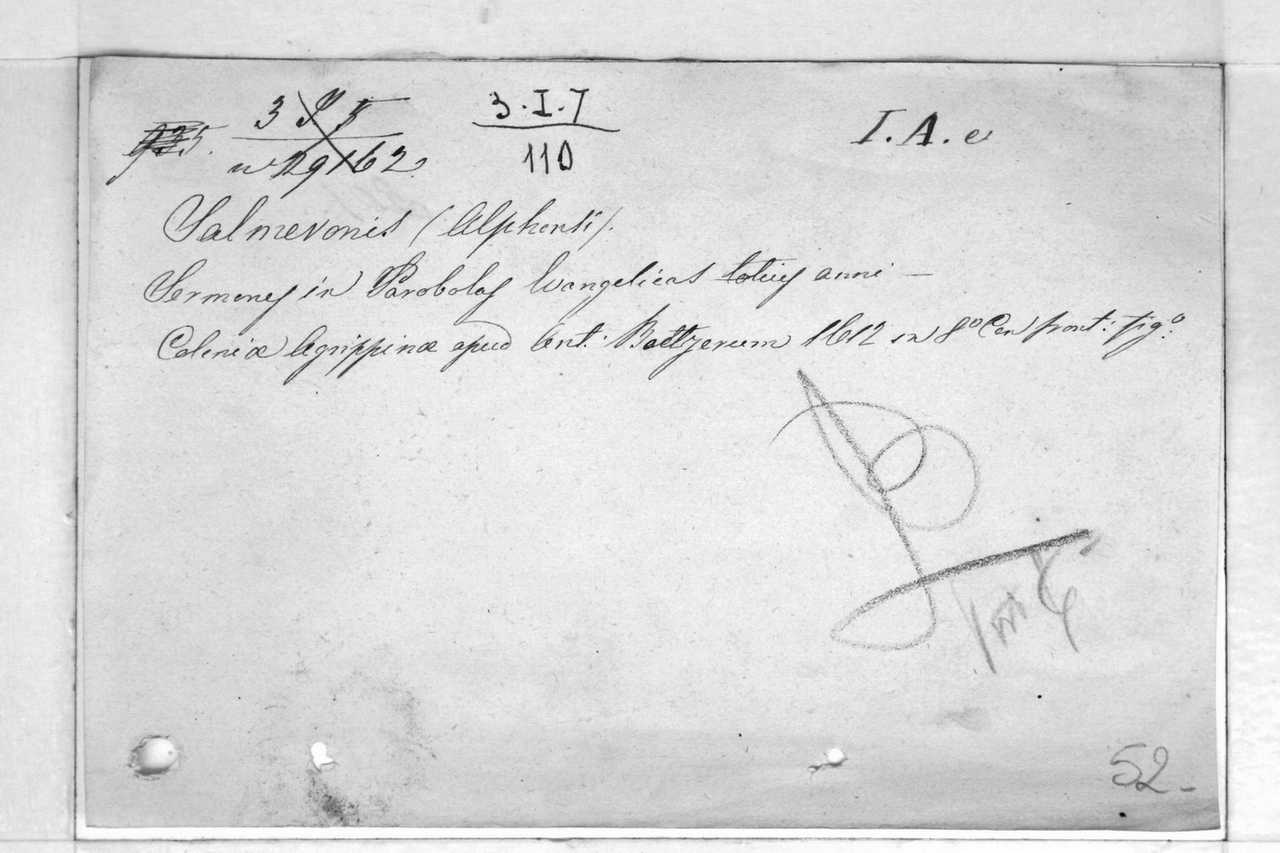 3 · I · 7
110
I. A. e
Salmeronis (Alphonsi).
Sermones in Parobolas Evangelicas totius anni —
Coloniæ Agrippinæ apud Ant: Boetzerum 1612 in 8º Con front: figº:
52.